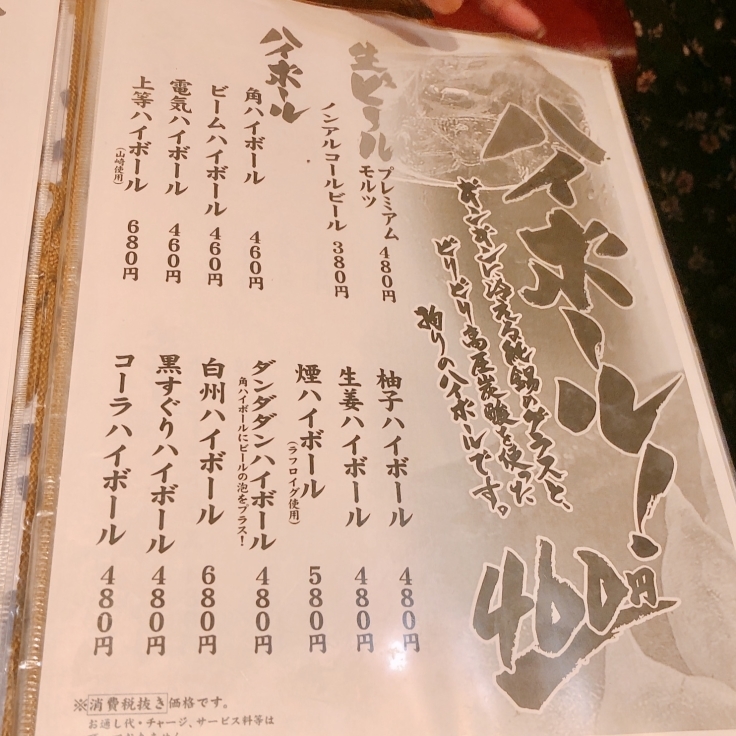 ハイボールー
キンキンに冷える純錫のグラスと、
ビリビリ高圧炭酸を使った
拘りのハイボールです。
460円
生ビール
プレミアムモルツ 480円
ノンアルコールビール 380円
ハイボール
角ハイボール 460円
ビームハイボール 460円
電気ハイボール 460円
上等ハイボール 680円
(山崎使用)
柚子ハイボール 480円
生姜ハイボール 480円
煙ハイボール 580円
(ラフロイグ使用)
ダンダダンハイボール 480円
角ハイボールにビールの泡をプラス!
白州ハイボール 680円
黒すぐりハイボール 480円
コーラハイボール 480円
※消費税抜き価格です。
お通し代・チャージ、サービス料等は